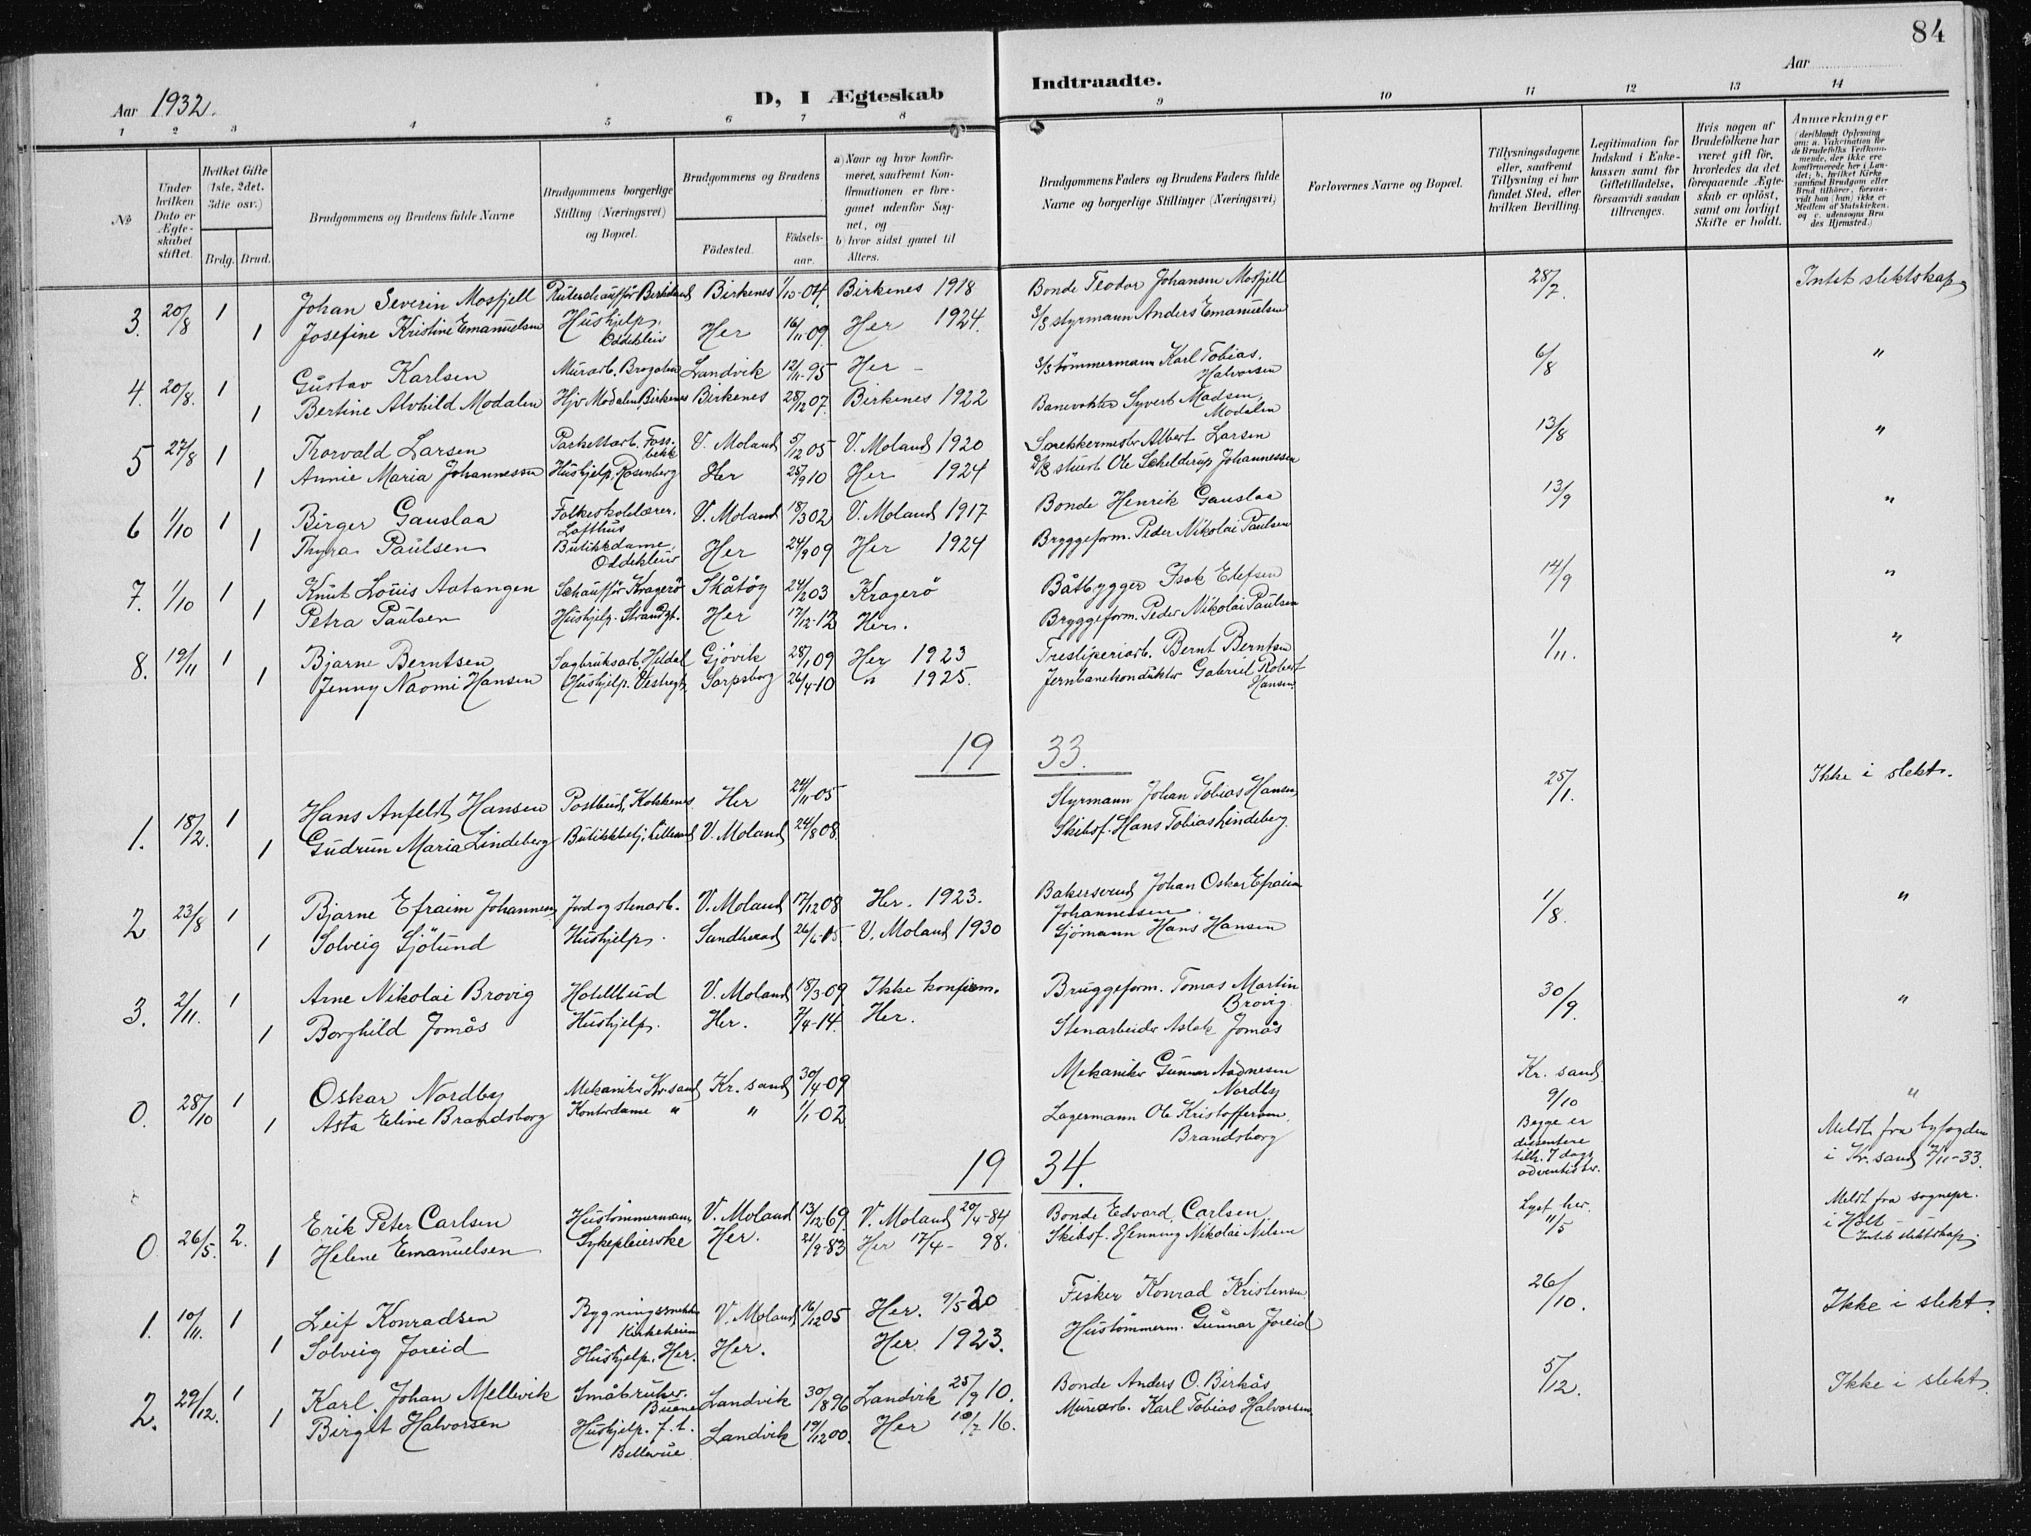 84
Aar 1932.
D, I Ægteskab Indtraadte.
Aar
1 2 3 4 5 6 7 8 9 10 11 12 13 14
No
Under hvilken Dato er Ægteskabet stiftet.
Hvilket Gifte (1ste, 2det, 3die osv.)
Brdg. Brud.
Brudgommens og Brudens fulde Navne
Brudgommens borgerlige Stilling (Næringsvei) og Bopæl.
Brudgommens og Brudens
Födested. Födselsaar.
a) Naar og hvor konfirmeret, saafremt Konfirmationen er foregaaet udenfor Sognet, og
b) hvor sidst gaaet til Alters.
Brudgommens Faders og Brudens Faders fulde Navne og borgerlige Stillinger (Næringsvei)
Forlovernes Navne og Bopæl.
Tillysningsdagene eller, saafremt Tillysning ei har fundet Sted, efter hvilken Bevilling.
Legitimation for Indskud i Enkekassen samt for Giftetilladelse, forsaavidt saadan tiltrænges.
Hvis nogen af Brudefolkene har været gift för, hvorledes da det foregaaende Ægteskab er oplöst, samt om lovligt Skifte er holdt.
Anmærkninger (deriblandt Oplysning om: a. Vakcination for de Brudefolks Vedkommende, der ikke ere konfirmerede her i Landet; b. hvilket Kirkesamfund Brudgom eller Brud tilhörer, forsaavidt han (hun) ikke er Medlem af Statskirken, og c. udensogns Brudes Hjemsted.)
3. 20/8 1 Johan Severin Mosfjell Rutechauffør Birkeland Birkenes 1/10-04. Birkenes 1918 Bonde Teodor Johansen Mosfjell 28/7. Intet slektskap.
1 Josefine Kristine Emanuelsen Hushjelp. Oddekleiv Her 16/11 09 Her 1924. styrmann Anders Emanuelsen
4. 20/8. 1 Gustav Karlsen Murarb. Landvik 12/11-95 Her - tømmermann Karl Tobias Halvorsen 6/8 "
1 Bertine Alvhild Modalen Hjv. Modalen, Birkenes Birkenes 28/12 07. Birkenes 1922 Banevokter Syvert Madsen, Modalen
5 27/8 1 Thorvald Larsen Parkettarb. Fossbekk V. Moland 5/12 05 V. Moland 1920 Albert Larsen 13/8 "
1 Annie Maria Johannessen Hushjelp, Rosenberg Her 25/9 10 Her 1924 stuert Ole Schelderup Johannessen
6 1/10 1 Birger Gauslaa Folkeskolelærer. Lofthus V. Moland 18/3 02 V. Moland 1917 Bonde Henrik Gauslaa 13/9 "
1 Thyra Paulsen Butikkdame, Oddekleiv Her 24/9 09 Her 1924 Bryggeform. Peder Nikolai Paulsen
7. 1/10 1 Knut Louis Aatangen Schauffør Kragerö Skåtöy 24/2 03 Kragerö Båtbygger Isak Elefsen 14/9 "
1 Petra Paulsen Hushjelp. Strandgt. Her 17/12-12 Her. Bryggeform. Peder Nikolai Paulsen
8. 19/11 1 Bjarne Berntsen Sagbruksarb. Heldal Gjövik 28/1 09 Her 1923 Tresliperiarb. Bernt Berntsen 1/11. "
1 Jenny Naomi Hansen Hushjelp. Vestregt. Sarpsborg 26/4-10 " 1925. Jernbanekonduktør Gabriel Robert Hansen.
19 33.
1. 18/2. 1 Hans Anfeldt Hansen Postbud, Kokkenes Her 24/11-05 Styrmann Johan Tobias Hansen 25/1. Ikke i slekt.
1 Gudrun Maria Lindeberg Butikkbetj. Lillesand V. Moland 24/8 08 Skibsf. Hans Tobias Lindeberg.
2 23/8 1 Bjarne Efraim Johannessen Jord og stenarb. V. Moland 17/12 08 Her. 1923. Bakersvend Johan Oskar Efraim Johannessen. 1/8. "
1 Solveig Sjölund Hushjelp. Sandherad 26/6-15 V. Moland 1930 Sjømann Hans Hansen
3. 2/11. 1 Arne Nikolai Brovig Hotellbud V. Moland 18/3-09 Ikke konfirm. Bruggeform. Tomas Martin Brovig. 30/9. "
1 Borghild Jomås Hushjelp. Her. 7/4-14. Her. Stenarbeider Aslak Jomås
0. 28/10 1 Oskar Nordby Mekaniker Kr.sand Kr. sand 30/4-09 Mekaniker Gunnar Aadnesen Nordby Kr. sand 9/10 "
1 Asta Eline Brandsborg Kontordame " " 1/1-02 Lagermann Ole Kristoffersen Brandsborg Begge er dissentere tilh. 7 dags adventistsr. Meldt fra byfogden i Kr.sand 2/11-33.
19 34.
0. 26/5. 2. Erik Peter Carlsen Hustommermann V. Moland 13/12-69 V. Moland 20/4-84 Bonde Edvard Carlsen Lyst her. 11/5 Meldt fra sognepr. i Holt Intet slektskap.
1 Helene Emanuelsen Sykepleierske Her. 21/9-83 Her 17/4- 98. Skibsf. Henning Nikolai Nilsen
1. 10/11. 1 Leif Konradsen Bygningssnekker Kirkeheien V. Moland 16/12 05 Her. 9/5 20 Fisker Konrad Kristensen 26/10. Ikke i slekt.
1 Solveig Joreid Hushjelp. Her. Her. Her 1923. Hustömmerm. Gunnar Joreid
2. 29/12. 1 Karl Johan Mellevik Småbruker. Buene Landvik 30/8 96 Landvik 25/9 10. Bonde Anders O. Birkås 5/12. Ikke i slekt.
1 Birget Halvorsen Hushjelp. f. t. Bellevue Landvik 19/12 00. Her 10/7 16. Murarb. Karl Tobias Halvorsen.